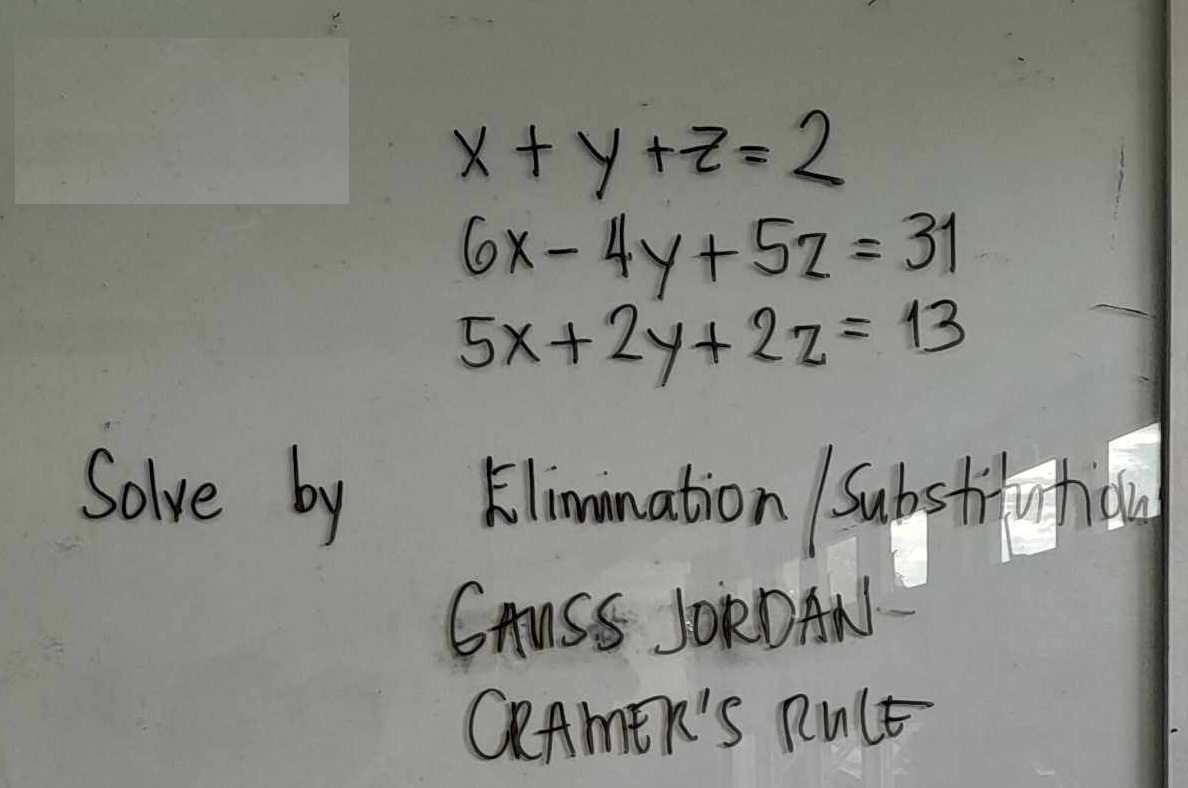 x + y + z = 2
6x - 4y + 5z = 31
5x + 2y + 2z = 13
Solve by Elimination / Substitution
GAUSS JORDAN
CRAMER'S RULE